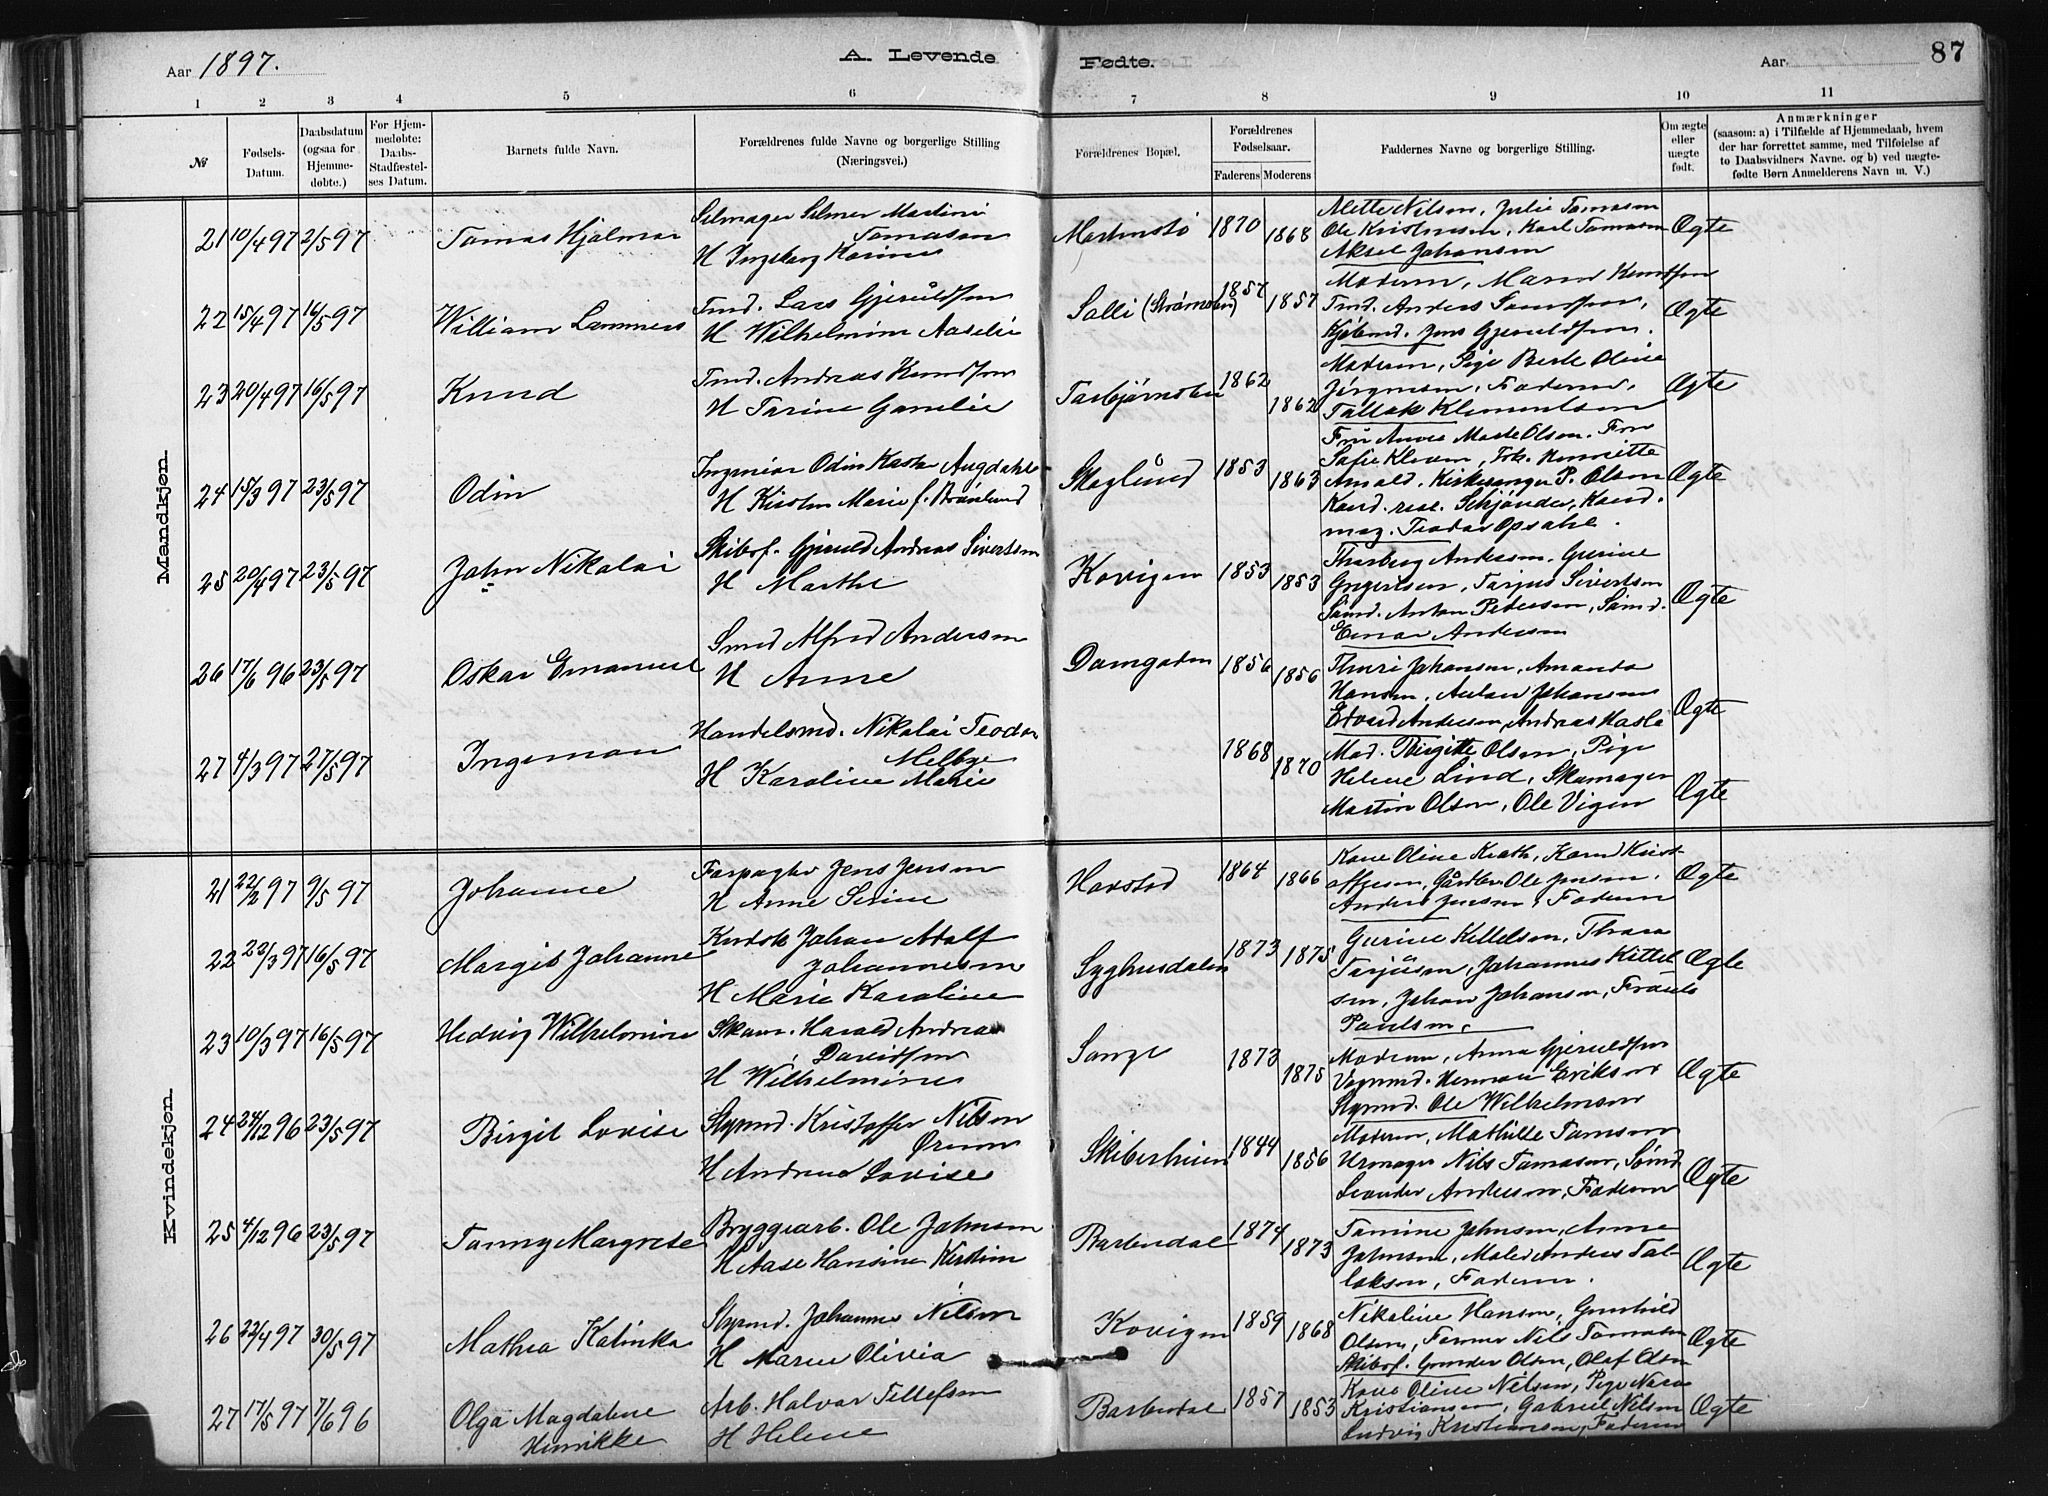 Aar 1897.
A. Levende Fødte.
Aar
87
1 2 3 4 5 6 7 8 9 10 11
№
Fødsels-Datum.
Daabsdatum (ogsaa for Hjemme-døbte.)
For Hjem-medøbte: Daabs-Stadfæstel-ses Datum.
Barnets fulde Navn.
Forældrenes fulde Navne og borgerlige Stilling (Næringsvei.)
Forældrenes Bopæl.
Forældrenes Fødselsaar.
Faderens Moderens
Faddernes Navne og borgerlige Stilling.
Om ægte eller uægte født.
Anmærkninger
(saasom: a) i Tilfælde af Hjemmedaab, hvem
der har forrettet samme, med Tilføielse af
to Daabsvidners Navne. og b) ved uægte-
fødte Børn Anmelderens Navn m. V.)
Mandkjøn.
21 10/4 97 2/5 97 Tomas Hjalmar
Selmager Selmer Martini Tomasen
H Ingeborg Karine
1870 1868
Mette Nilsen, Julie Tomasen
Ole Kristensen, Karl Tomasen
Aksel Johansen
Ægte
22 15/4 97 16/5 97 William Lammers
Tmd. Lars Gjeruldsen
H Wilhelmine Aaselie
Solli 1857 1857
Modren, Maren Knudsen
Tmd. Anders
Kjøbmd. Jens Gjeruldsen.
Ægte
23 20/4 97 16/5 97 Knud
Tmd. Andreas Knudsen
H Tarine Gamelie
Torbjørnsbu 1862 1862
Modren, Pige Berte Oline
Jörgensen, Faderen,
Tallak Klementsen
Ægte
24 15/3 97 23/5 97 Odin
Ingeniør Odin Augdahl
H Kirsten Marie f.
Skoglund 1853 1863
Fru Anne Marie Olsen. Fru
Sofie Kleven, Frk. Henriette
Arnold, Kirkesanger P. Olsen
Kand. real. Schjønder, Kand.
mag. Teodor Opsahl.
Ægte
25 20/4 97 23/5 97 John Nikolai
Skibsf. Gjeruld Andreas Sivertsen
H Marthe
Kovigen 1853 1853
Thorborg Andersen, Gurine
Gregersen, Tarjus Sivertsen
Sømd. Anton Pedersen, Sømd.
Einar Andersen
Ægte
26 17/6 96 23/5 97 Oskar Emanuel
Smed Alfred Andersen
H Anne
Damgaden 1856 1856
Thuri Johansen, Amanda
Hansen, Anton Johansen
Edvard Andersen, Andreas Hasle
Ægte
27 4/3 97 27/5 97 Ingeman
Handelsmd. Nikolai Teodor Melbye
H Karoline Marie
1868 1870
Mad. Birgitte Olsen, Pige
Helene Lind, Skomager
Martin Olsen, Ole Vigen
Ægte
Kvindekjøn.
21 22/2 97 9/5 97 Johanne
Forpagter Jens Jensen
H Anne Serine
Havstad 1864 1866
Kone Oline Knath, Karen Krist-
offersen, Gårdbr Ole Jensen,
Anders Jensen, Faderen
Ægte
22 23/3 97 16/5 97 Margit Johanne
Kudsk Johan Adolf Johannesen
H Marie Karoline
Syghusdalen 1873 1875
Gurine Kittelsen, Thora
Tarjusen, Johannes Kittel-
sen, Johan Johansen, Frants
Paulsen.
Ægte
23 10/3 97 16/5 97 Hedvig Wilhelmine
Skom. Harald Andreas Davidsen
H Wilhelmine
Songe 1873 1875
Modren, Anna Gjeruldsen
Vognmd. Herman Eriksen
Stymd. Ole Wilhelmsen
Ægte
24 24/12 96 23/5 97 Birgit Lovise
Stymd. Kristoffer Nilsen
H Andrea Lovise
Skiberheien 1844 1856
Modren, Mathilde Tomsen
Urmager Nils Tomasen, Sømd
Leander Andersen, Faderen
Ægte
25 4/12 96 23/5 97 Tanny Margrete
Bryggearb. Ole Johnsen
H Aase Hansine
Barbudal 1874 1873
Tomine Johnsen, Anne
Johnsen, Maler Anders Tal-
laksen, Faderen.
Ægte
26 22/4 97 30/5 97 Mathea Katinka
Stymd. Johannes Nilsen
H Maren Olivia
Kovigen 1859 1868
Nikoline Hansen, Gunhild
Olsen, Farmer Nils Tomasen
Skibsf. Gunder Olsen, Olaf Olsen
Ægte
27 17/5 97 7/6 96 Olga Magdalene Henrikke
Arb. Halvor Tellefsen
H Helene
Barbudal 1857 1853
Kone Oline Nilsen, Pige Nara
Kristiansen, Gabriel Nilsen
Ludvig Kristiansen, Faderen
Ægte